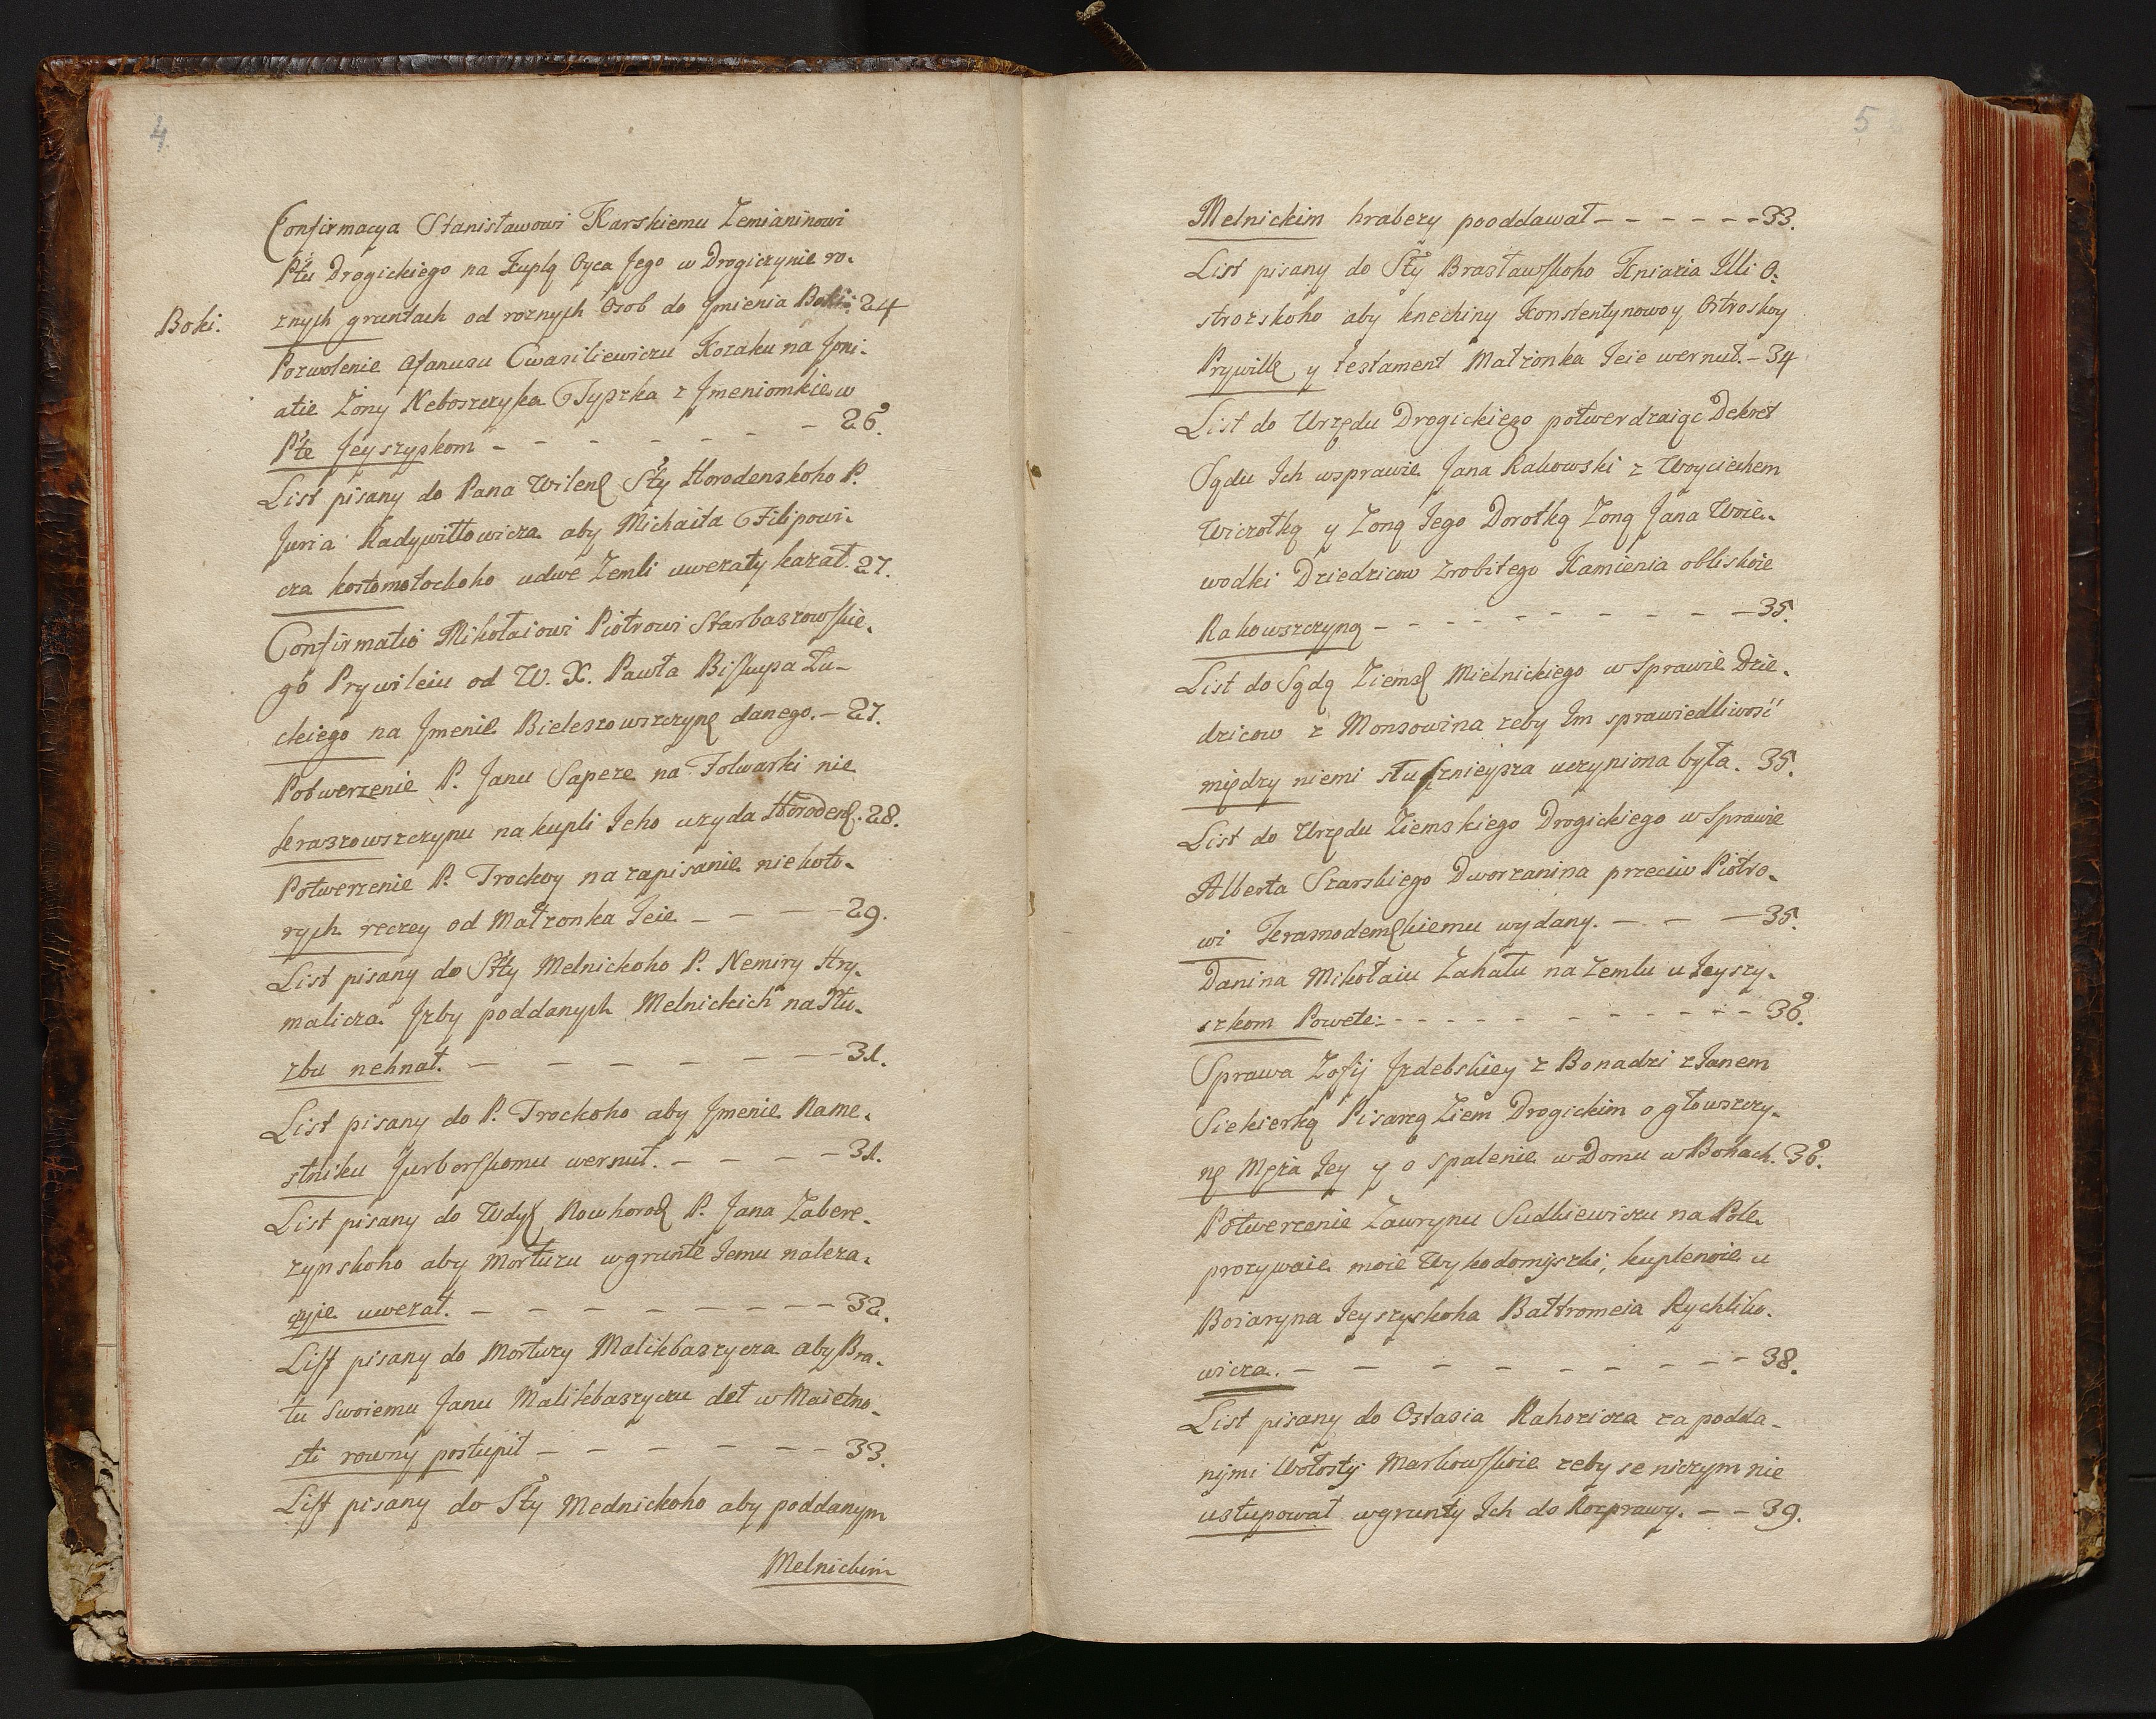 4
Confirmacya Stanisławowi Karskiemu Zemianinowi
Ptu Drogickiego na Kuplą Oyca Jego w Drogiczynie ro-
znych gruntach od roznych Osob do Jmienia Boki. 24
Boki.
Pozwolenie Afanusu Cwasiliewiczu Kozaku na Jmi-
atie Żony Neboszczyka Typzka z Jmeniomkie w
Pte Jeyszyskom - - - - - - - 26.
List pisany do Pana Wilenſ Sty Horodenskoho P.
Juria Radywiłłowicza aby Michaiła Filipowi-
cza kostomołockoho udwe Zemli uwezaty kazał. 27.
Confirmatio Mikołaiowi Piotrowi Starbaszowſkie-
go Prywileiu od W. X. Pawła Biſkupa Łu-
ckiego na Jmenie Bieleszowszczyznę danego. - 27.
Potwerzenie P. Janu Sapeze na Folwarki nie
Jeraszowszczynu na kupli Jeho uzyda Horodenſ. 28.
Potwerzenie P. Trockoy na zapisanie niekoto-
rych reczey od Małzonka Jeie - - - - 29.
List pisany do Stty Melnickoho P. Nemiry Hry-
malicza Jzby poddanych Melnickich na Słu-
zbu nehnał. - - - - - - - 31.
List pisany do P. Trockoho aby Jmenie Name-
stniku Jurborſkomu wernuł. - - - - 31.
List pisany do Wdyſ Nowhorod P. Jana Zabere-
zynskoho aby Morturu w grunte Jemu naleza-
czyie uwezał. - - - - - - - - 32.
Liſt pisany do Mortuzy Malikbaszycza aby Bra-
tu Swoiemu Janu Malikbaszyczu deł w Maietno-
sti rowny postupił - - - - - - 33.
Liſt pisany do Sty Mednickoho aby poddanym
Melnickim
5
Melnickim hrabezy pooddawał - - - - - - 33.
List pisany do Sty Brasławſkoho Kniazia Jlli O-
strozskoho aby knechiny Konstentynowoy Ostroskoy
Prywille y testament Małżonka Jeie wernuł. - 34
List do Urzędu Drogickiego potwerdzaiąc Dekret
Sądu Jch wsprawie Jana Rakowski z Woyciechem
Wiczotką y Zoną Jego Dorotką Zoną Jana Woie-
wodki Dziedzicow zrobitego Kamienia obliskoie
Rakowszczyną - - - - - - - - 35.
List do Sądą Ziemsſ Mielnickiego w Sprawie Dzie-
dzicow z Monsowina zeby Im sprawiedliwość
między niemi słuſznieysza uczyniona była. 35.
List do Urzędu Ziemskiego Drogickiego w Sprawie
Alberta Szarskiego Dworzanina przeciw Piotro-
wi Jerasnodemſkiemu wydany. - - - 35.
Danina Mikołaiu Zahału na Zemlu u Jeyszy-
szkom Powete: - - - - - - - - - 36.
Sprawa Zofij Jzdebskiey z Bonadzi z Janem
Siekierką Pisarzą Ziem Drogickim o głowszczy-
nę Męża Jey y o spalenie w Domu w Bokach. 36.
Potwerzenie Ławrynu Sudkiewiczu na Pole
prozywaie moie Wykodomyszki, kuplenoie u
Boiaryna Jeyszyskoha Bałtromeia Rychliko-
wicza. - - - - - - - - 38.
List pisany do Ostasia Rahozicza za podda-
nymi Wołosty Markowſkoie zeby se niczym nie
ustupował w grunty Jch do Rozprawy. - - 39.